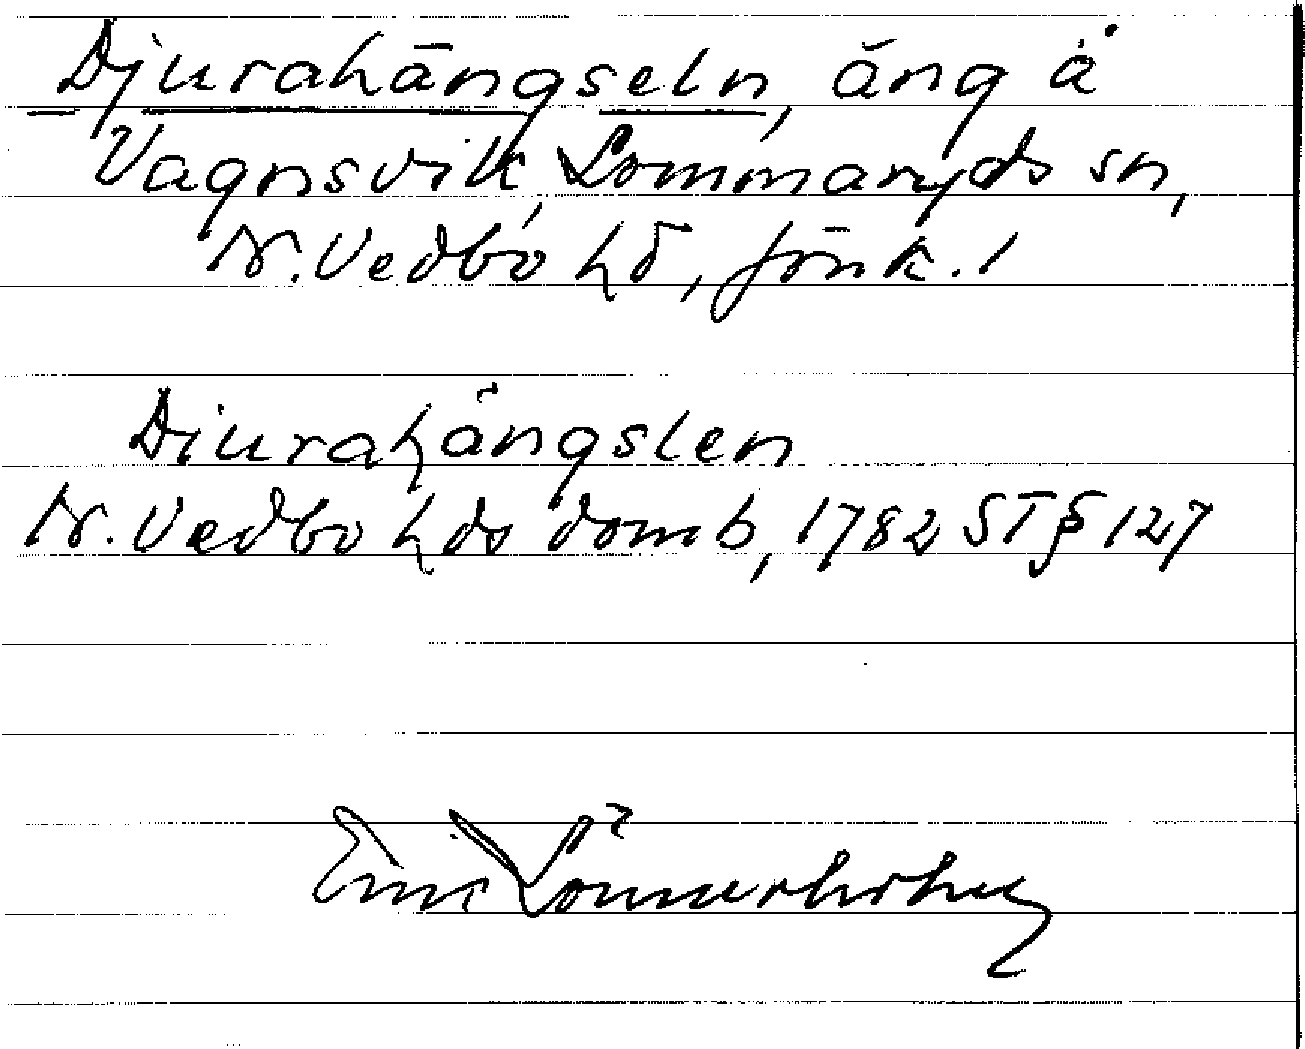 Djurahängseln, äng å
Vagnsvik, Lommaryds sn,
N. Vedbo hd, Jönk. l
Diurahängslen
N. Vedbo hds domb, 1782 ST § 127